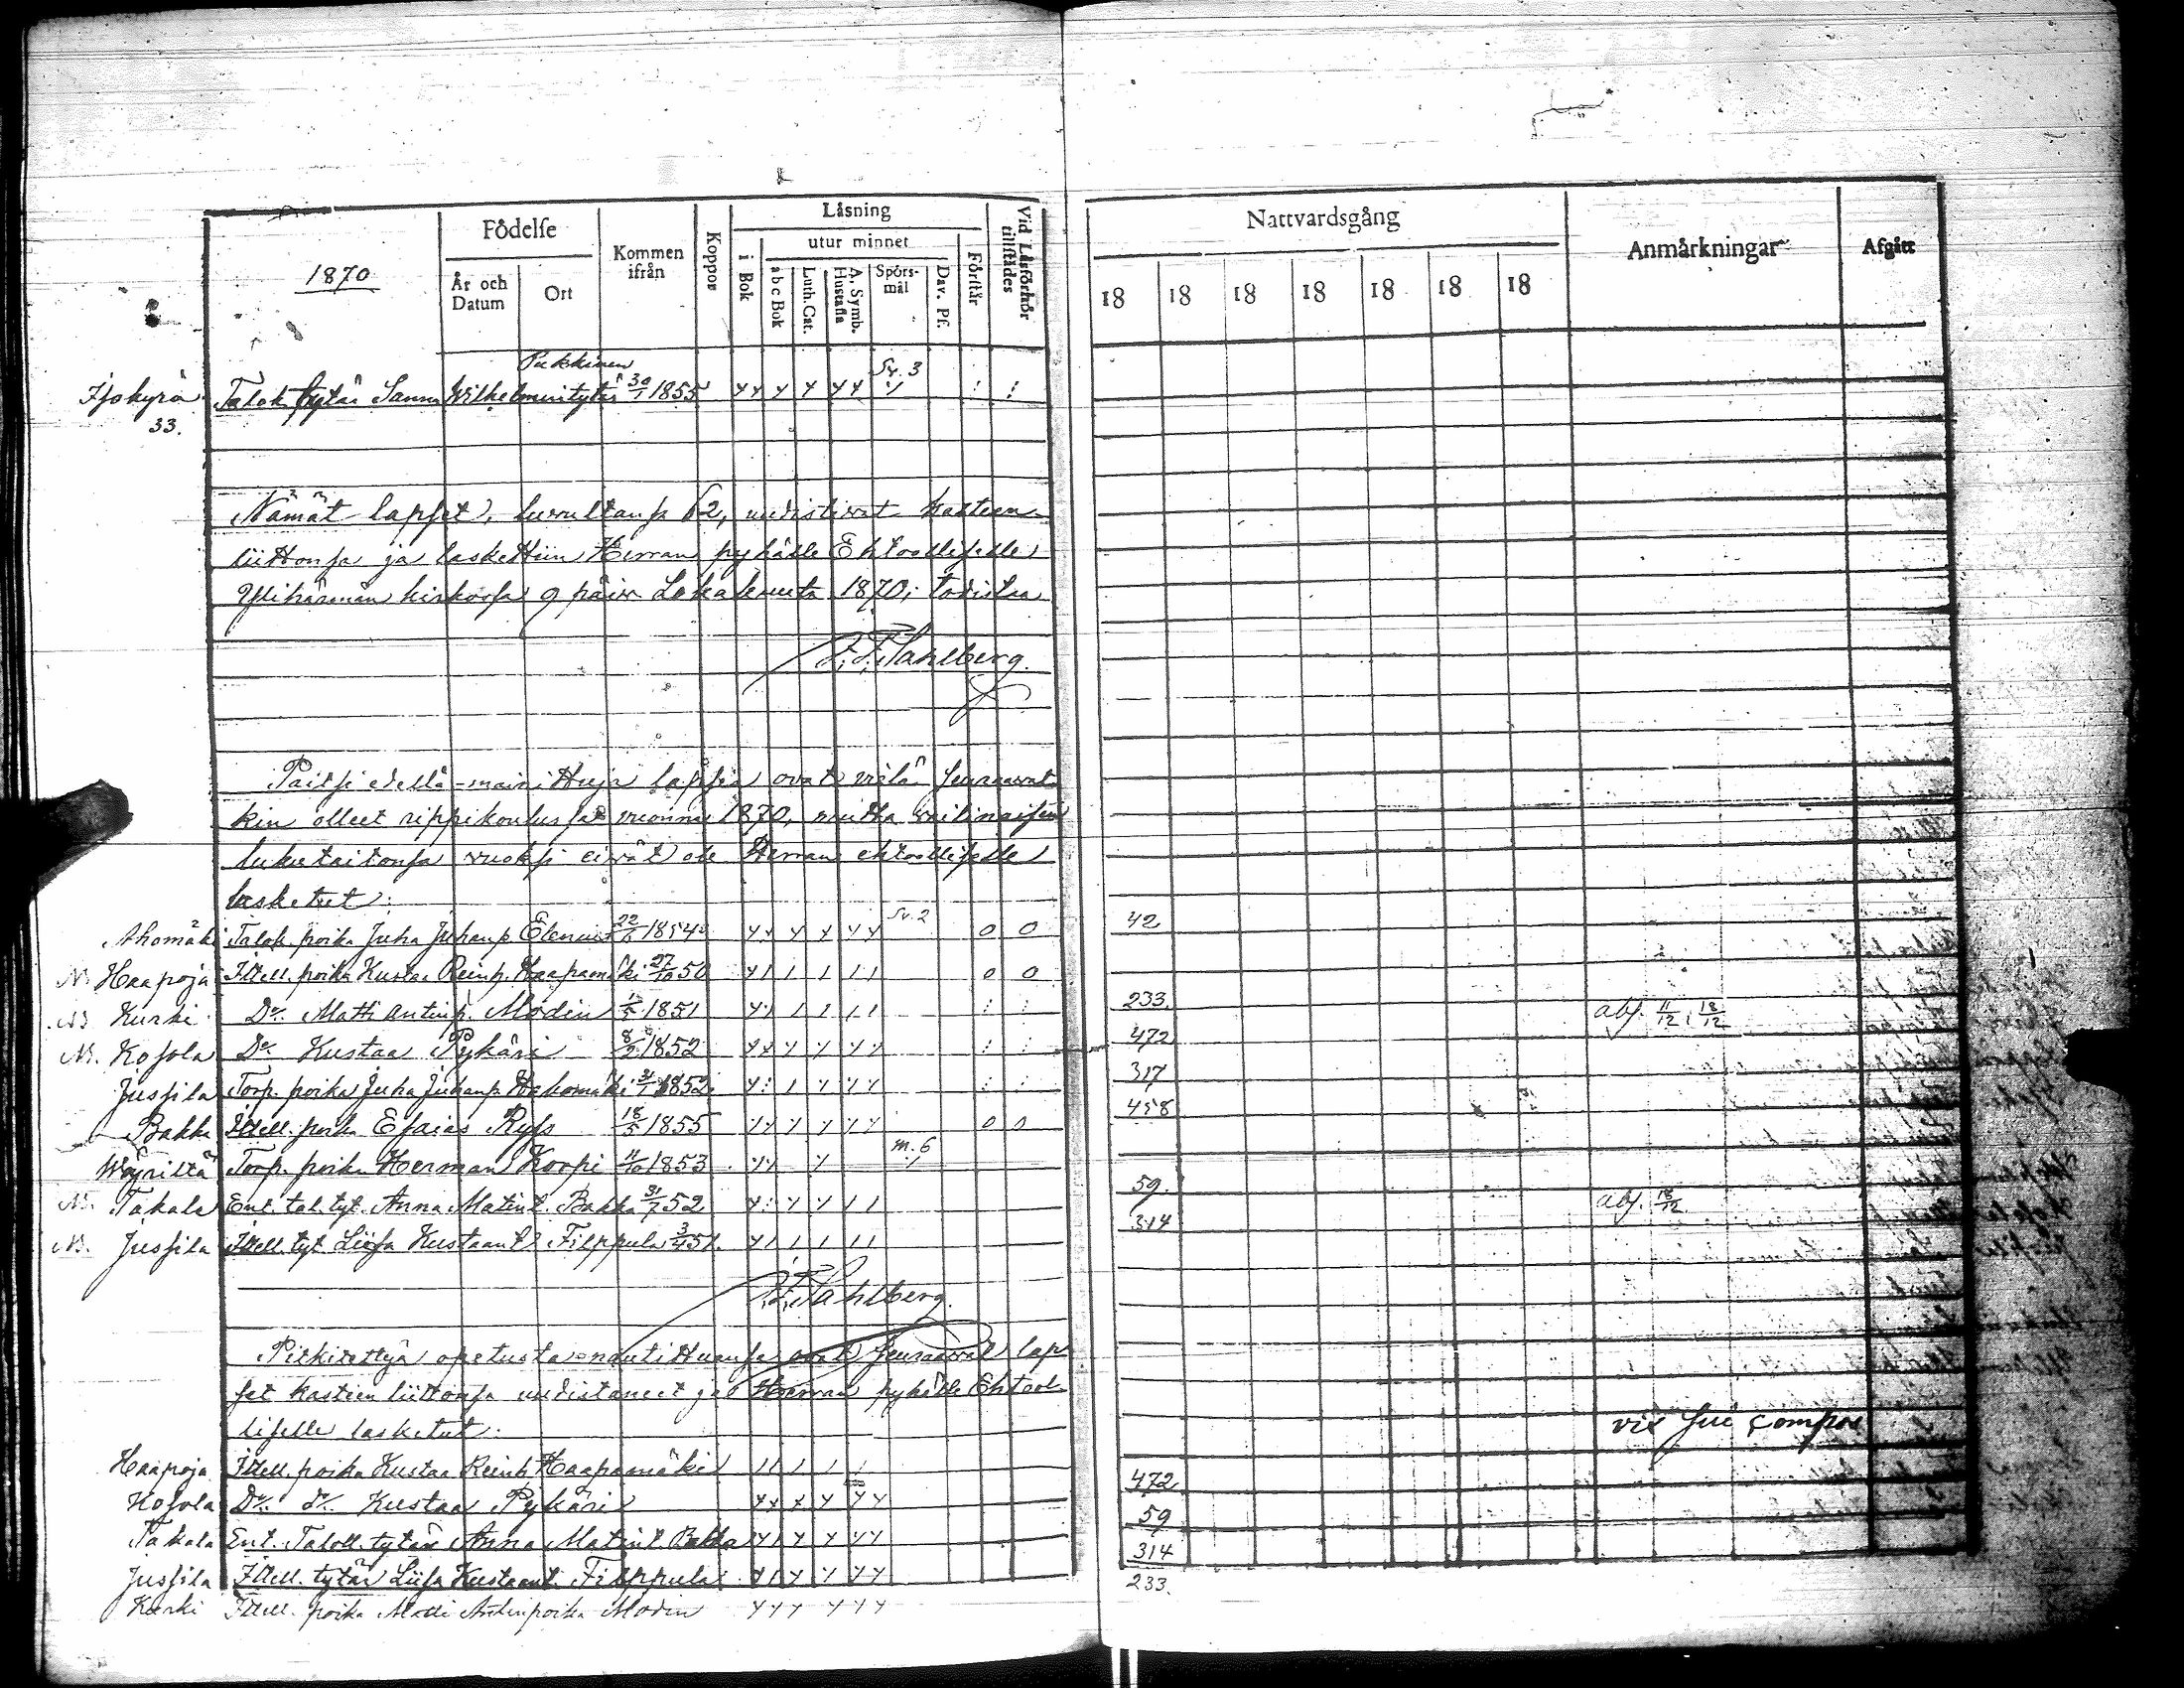 1870
Födelse
År och Datum
Ort
Kommen ifrån
Koppor
Läsning
i Bok
utur minnet
abc Bok
Luth. Cat.
A. Symb. Hustafla
Spörsmål
Dav. Ps.
Förstår
Vid Läsförhör tillstädes
Nattvardsgång
18 18 18 18 18 18 18
Anmärkningar
Afgått
Pukkinen Sv. 3
Isokyrö Talok. tytär Sanna Wilhelmintytär 30/1 1855
33.
Nämät lapset, luvultansa 62, uudistivat kasteen
liittonsa ja laskettiin Herran pyhälle Ehtoolliselle
Ylihärmän kirkossa 9 päiv Lokakuuta 1870; todistaa
Stahlberg.
Paitsi edellä-mainittuja lapsia ovat vielä seuraavat
kin olleet rippikoulussa vuonna 1870, mutta vaillinaisen
lukutaitonsa vuoksi eivät ole Herran ehtoolliselle
lasketut:
Ahomäki Talok. poika Juha Juhanp. Elenius 22/6 1854 Sv. 2 0 0 42
N. Haapoja Ittell. poika Kustaa Reinh. Haapamäki 27/10 50 0 0
N. Kurki Do. Matti Antinp. Modin 1851 233. abs. 11/12, 18/12
N. Kosola Do. Kustaa Pykäri 8/2 1852 472
Jussila Torp. poika Juha Juhanp. Hakomäki 31/1 1852 317
Bakka Ittell. poika Esaias Ryss 18/5 1855 0 0 458
Wäyriltä Torp. poika Herman Korpi 11/10 1853 m. 6
N. Takala Ent. tal. tyt. Anna Matint. Bakka 31/7 52 59. abs. 18/12
N. Jussila Ittell. tyt. Liisa Kustaant. Filppula 3/4 51. 314
Stahlberg.
Pitkitettyä opetusta nautittuansa ovat seuraavat lap
set kasteen liittonsa uudistaneet ja Herran pyhälle Ehtool
liselle lasketut:
vix sui compos
Haapoja Ittell. poika Kustaa Reinh. Haapamäki
Kosola Do. do. Kustaa Pykäri 472
Takala Ent. Taloll. tytär Anna Matint. Bakka 59
Jussila Ittell. tytär Liisa Kustaant. Filppula 314
Kurki Ittell. poika Matti Antinpoika Modin 233.